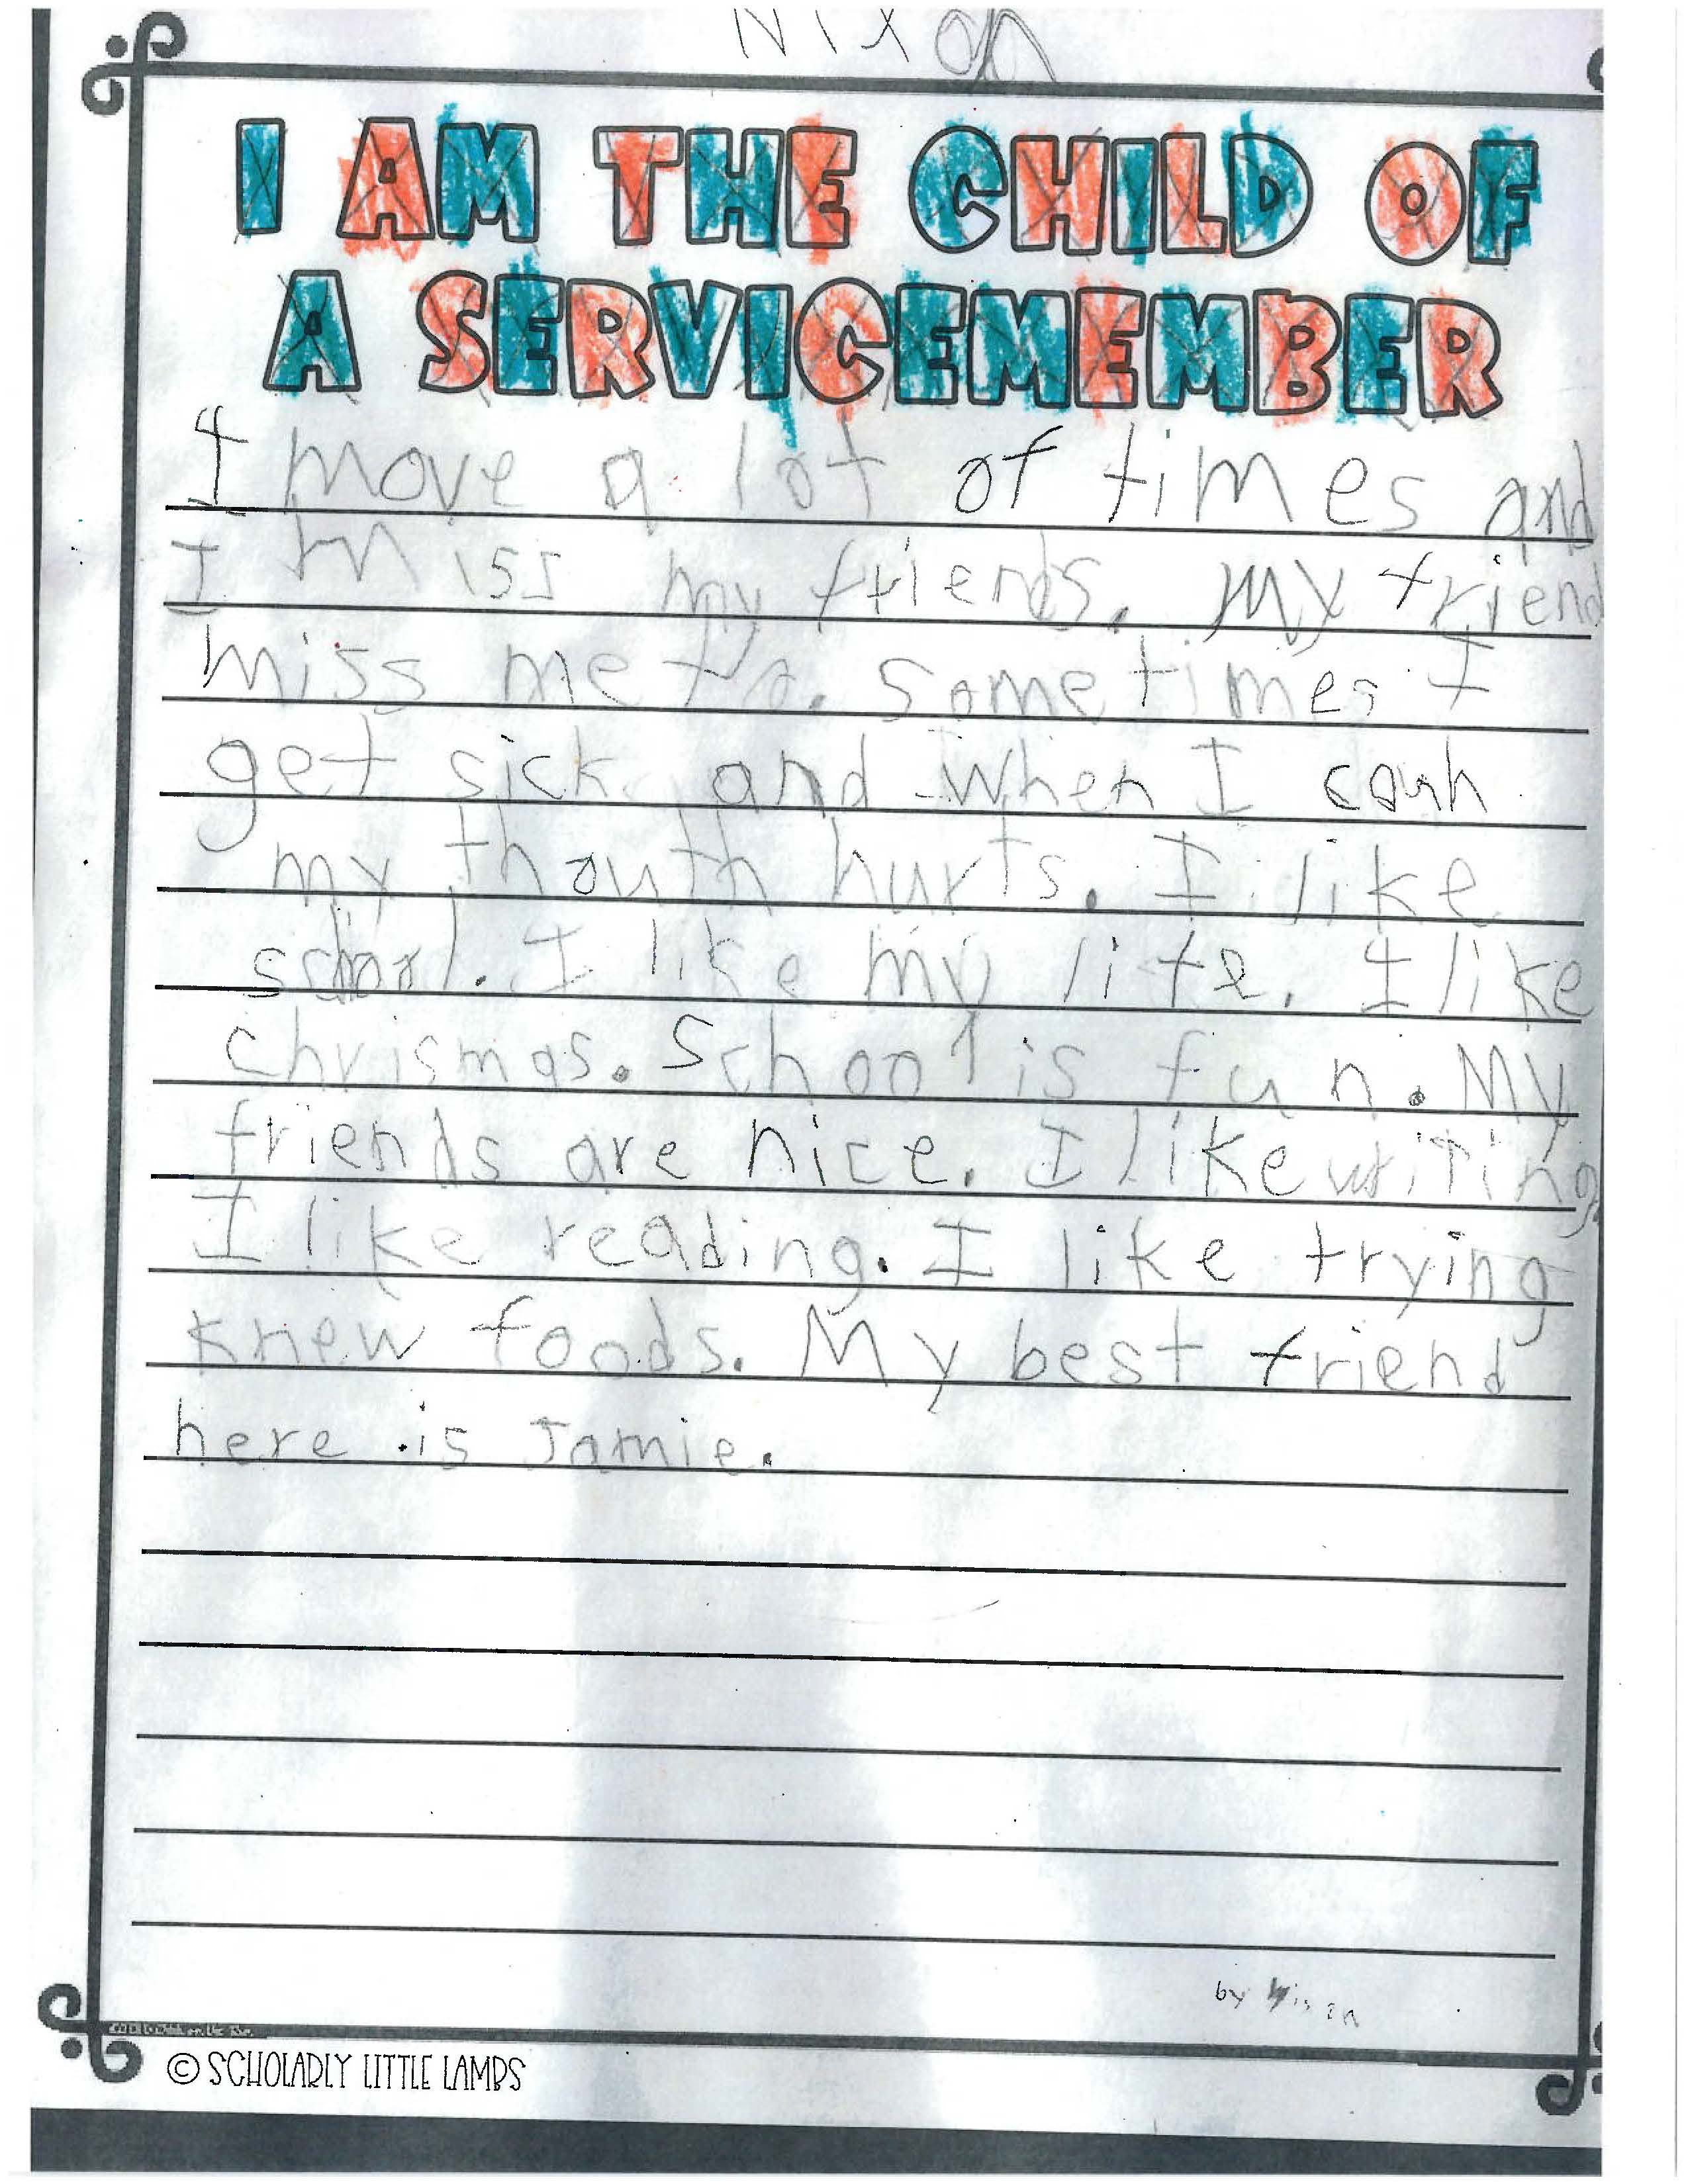 Nixon
I AM THE CHILD OF
A SERVICEMEMBER
I move a lot of times and
I miss my friends. My friend
miss me to. Sometimes I
get sick and when I couh
my thouth hurts. I like
school. I like my life. I like
chrismas. School is fun. My
friends are nice. I like writing.
I like reading. I like trying
knew foods. My best friend
here is Jamie.
by
© SCHOLARLY LITTLE LAMBS